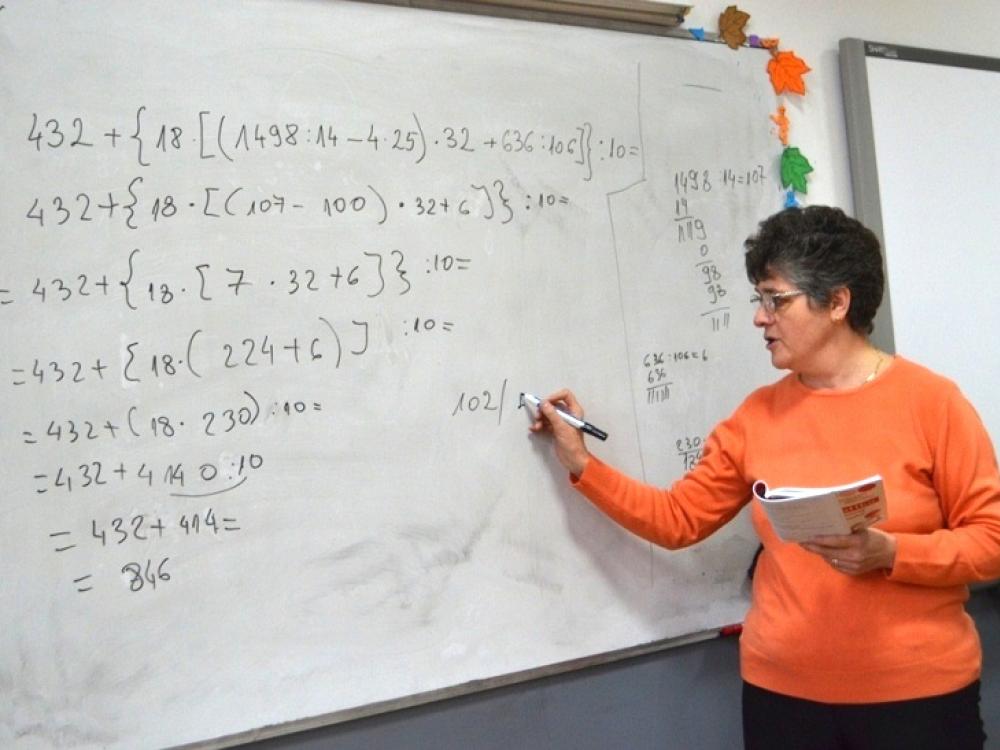 432 + {18 · [(1498 : 14 – 4 · 25) · 32 + 636 : 106]} : 10 =
432 + {18 · [(107 – 100) · 32 + 6]} : 10 =
= 432 + {18 · [7 · 32 + 6]} : 10 =
= 432 + [18 · (224 + 6)] : 10 =
= 432 + (18 · 230) : 10 =
= 432 + 4140 : 10
= 432 + 414 =
= 846
102/
1498 : 14 = 107
14
9
0
98
98
636 : 106 = 6
636
230
SMART